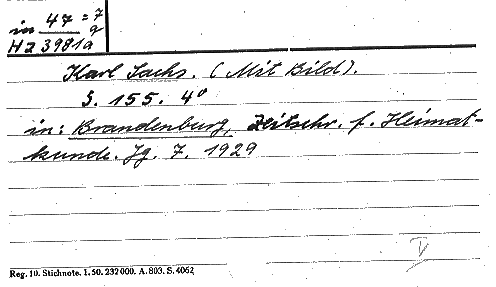 in 47 = 7
HZ 3981a 9
Karl Sachs. (Mit Bild).
S. 155. 4°
in: Brandenburg, Zeitschr. f. Heimat-
kunde. Jg. 7. 1929
V
Reg. 10. Stichnote. 1. 50. 232000. A. 803. S. 4062